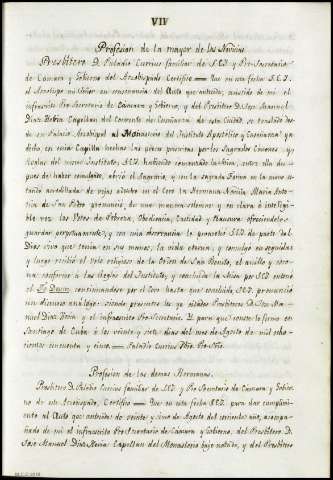 VIV
Profesion de la mayor de las Novicias.
Presbítero D. Paladio Currius familiar de S.E.I. y Pro-Secretario
de Cámara y Gobierno del Arzobispado. Certifico — Que en esta fecha S.E.I.
el Arzobispo mi Señor en consecuencia del Auto que antecede, asistido de mi el
infrascrito Pro-Secretario de Cámara y Gobierno, y del Presbítero D. José Manuel
Diaz Capellan del Convento de Enseñanza de esta Ciudad, se trasladó des-
de su Palacio Arzobispal al Monasterio del Instituto Apostólico y Enseñanza, ya
dicho, en cuya Capilla hechas las preces prescritas por los Sagrados Canones y
Reglas del mismo Instituto, S.E.I. habiendo comenzado la Misa, entre ella des-
pues de haber consumido, abrió el Sagrario, y con la sagrada Forma en la mano es-
tando arrodillada de rojas ante en el Coro la Hermana Novicia María Anto-
nia de San Pedro pronunció de una manera solemne y en clara é inteligi-
ble voz los Votos de Pobreza, Obediencia, Castidad y Clausura ofreciéndole
guardar perpetuamente; y con esta observancia le prometió S.E.I. de parte del
Dios vivo que tenia en sus manos, la vida eterna; y comulgó en seguida
y luego recibió el velo religioso de la Orden de San Benito, el anillo y coro-
na conforme á las Reglas del Instituto, y concluida la Misa por S.E.I. entonó
el Te Deum continuandose por el Coro hasta que concluido S.E.I. pronunció
un discurso análogo: siendo presentes los ya citados Presbítero D. José Ma-
nuel Diaz y el infrascrito Pro-Secretario. Y para que conste lo firmo en
Santiago de Cuba á los veinte y siete dias del mes de Agosto de mil ocho-
cientos cincuenta y cinco. — Paladio Currius Pbro. Pro-Srio.
Profesion de las demas Hermanas.
Presbítero D. Paladio Currius familiar de S.E.I. y Pro Secretario de Cámara y Gobier-
no de este Arzobispado, Certifico — Que en esta fecha S.E.I. para dar cumplimi-
ento al Auto que antecede de veinte y cinco de Agosto del corriente año, acompa-
ñado de mi el infrascrito Pro Secretario de Cámara y Gobierno, del Presbítero D.
José Manuel Diaz Capellan del Monasterio bajo notado, y del Presbítero